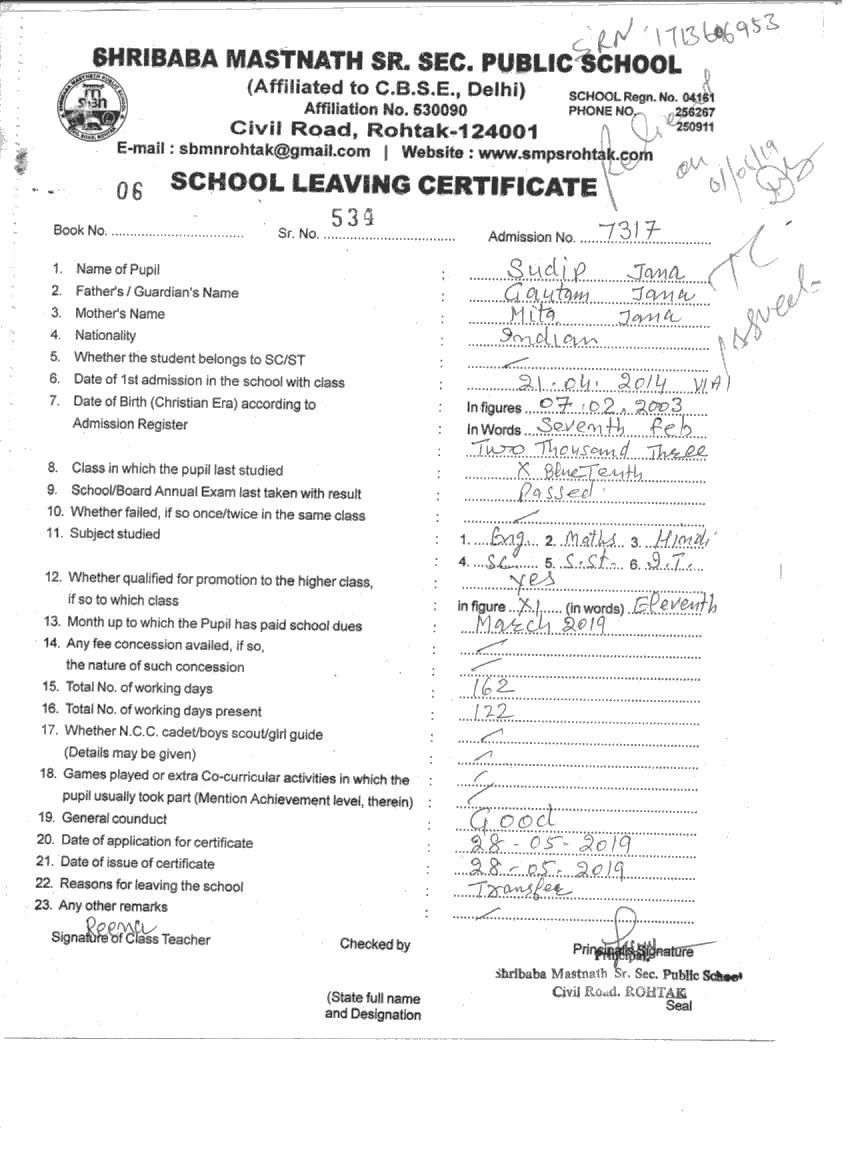 SRN 1713606953
SHRIBABA MASTNATH SR. SEC. PUBLIC SCHOOL
(Affiliated to C.B.S.E., Delhi)
Affiliation No. 530090
SCHOOL Regn. No. 04161
PHONE NO. 256267
250911
Civil Road, Rohtak-124001
E-mail : sbmnrohtak@gmail.com | Website : www.smpsrohtak.com
on
01/06/19
06 SCHOOL LEAVING CERTIFICATE
Book No. Sr. No. 534 Admission No. 7317
TC
issued
1. Name of Pupil : Sudip Jana
2. Father's / Guardian's Name : Gautam Jana
3. Mother's Name : Mita Jana
4. Nationality : Indian
5. Whether the student belongs to SC/ST :
6. Date of 1st admission in the school with class : 21.04.2014 VI A
7. Date of Birth (Christian Era) according to : In figures 07.02.2003
Admission Register : In Words Seventh Feb
Two Thousand Three
8. Class in which the pupil last studied : X Blue Tenth
9. School/Board Annual Exam last taken with result : Passed
10. Whether failed, if so once/twice in the same class :
11. Subject studied : 1. Eng 2. Maths 3. Hindi
4. SC. 5. S.St. 6. I.T.
12. Whether qualified for promotion to the higher class, : Yes
if so to which class in figure XI (in words) Eleventh
13. Month up to which the Pupil has paid school dues : March 2019
14. Any fee concession availed, if so, :
the nature of such concession :
15. Total No. of working days : 162
16. Total No. of working days present : 122
17. Whether N.C.C. cadet/boys scout/girl guide :
(Details may be given) :
18. Games played or extra Co-curricular activities in which the :
pupil usually took part (Mention Achievement level, therein) :
19. General counduct : Good
20. Date of application for certificate : 28-05-2019
21. Date of issue of certificate : 28-05-2019
22. Reasons for leaving the school : Transfer
23. Any other remarks :
Reena
Signature of Class Teacher Checked by Principal's Signature
Principal,
Shribaba Mastnath Sr. Sec. Public School
Civil Road, ROHTAK
(State full name Seal
and Designation